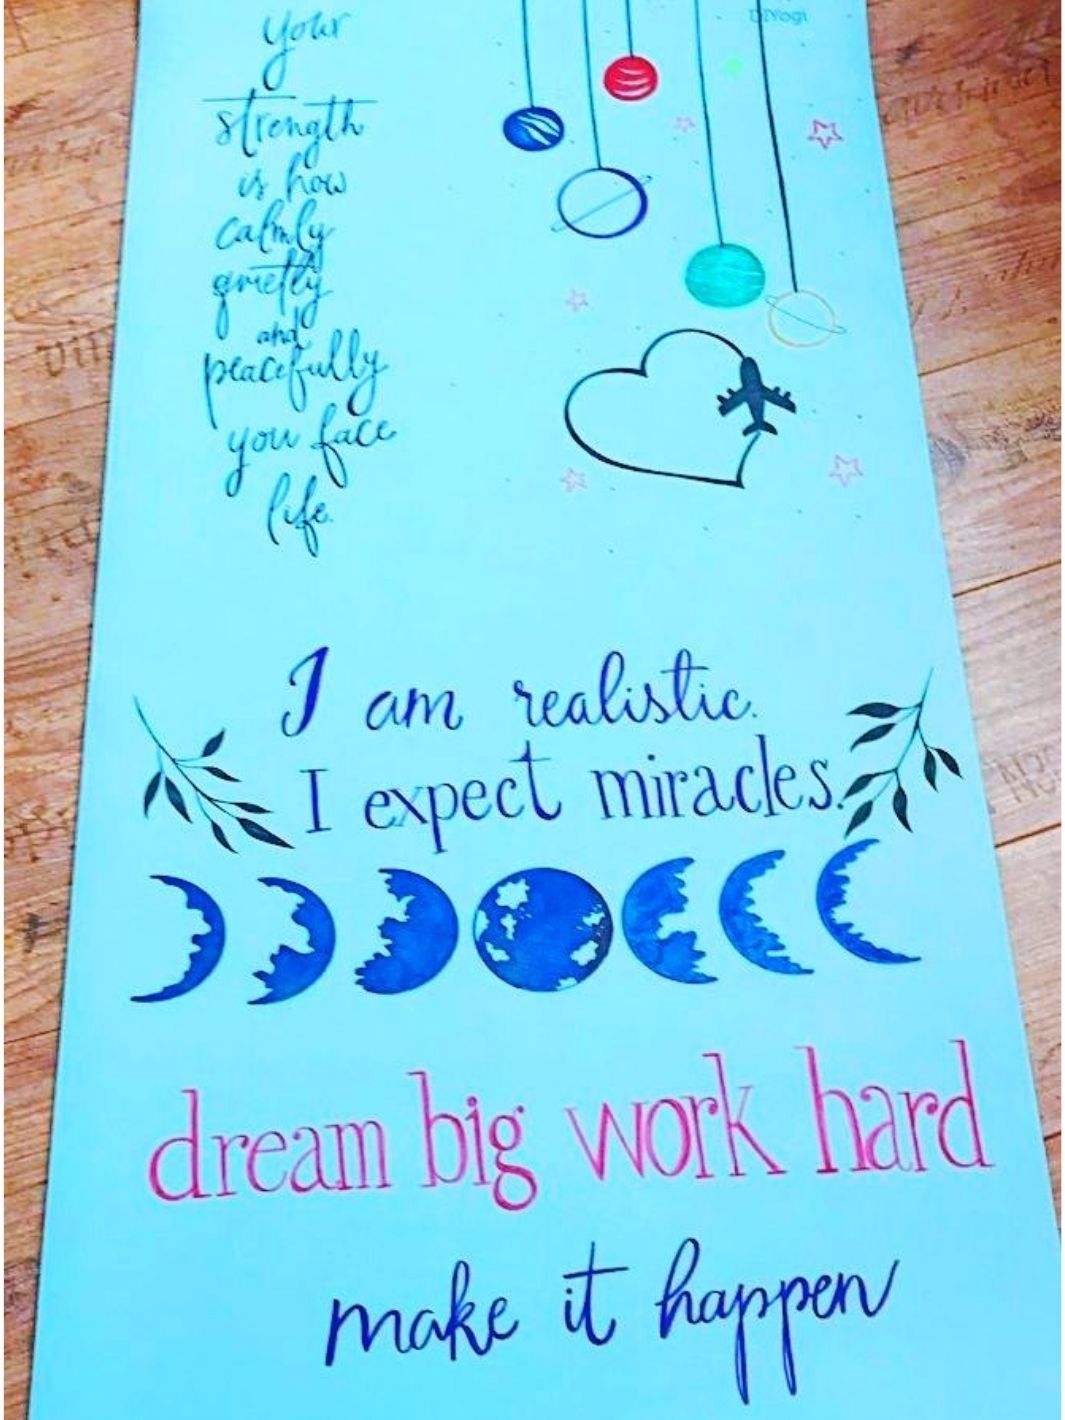 your
strength
is how
calmly
quietly
and
peacefully
you face
life.
DIYogi
I am realistic.
I expect miracles.
dream big work hard
make it happen